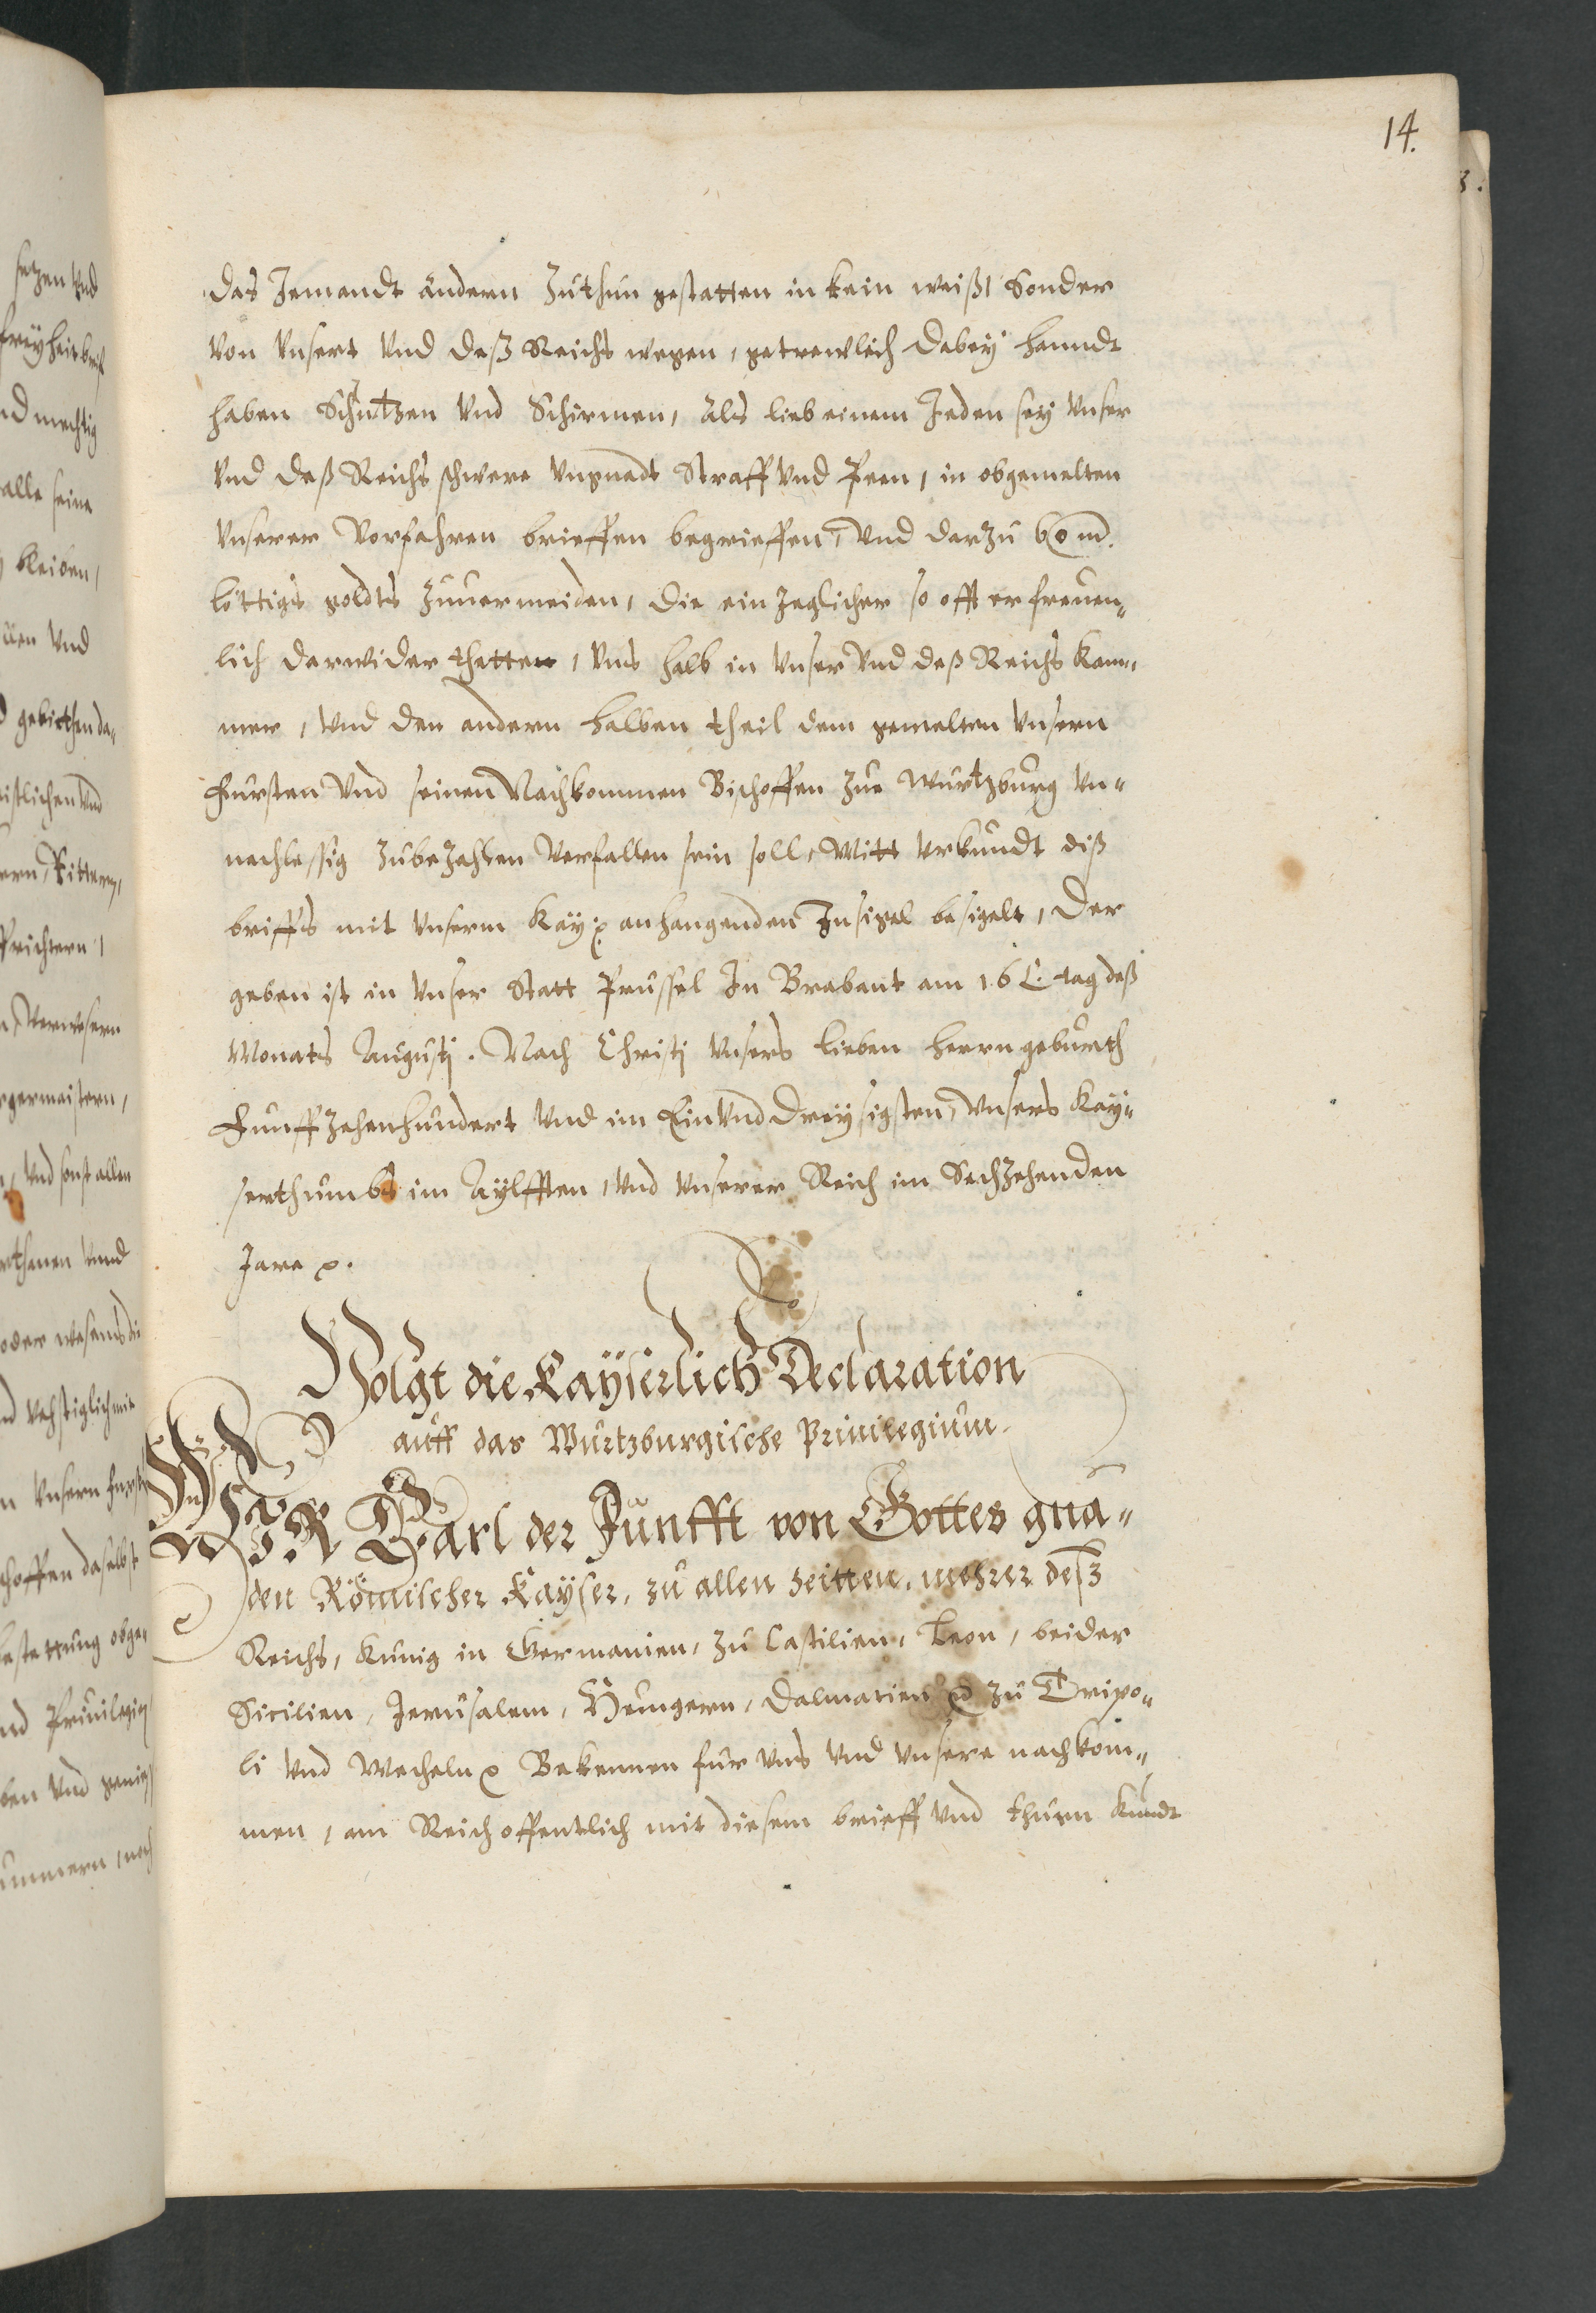 14.
das Jemandt andern Zuthun gestatten in kein weiß, Sonder
von Unsert Und deß Reichs wegen, getrewlich dabey handt
haben Schutzen Und Schirmen, als lieb einem Jeden sey Unser
Und deß Reichs schwere Ungnadt Straff Und Peen, in obgemelten
Unserer Vorfahren brieffen begrieffen, Und darzu
löttigs goldts Zuuermeiden, die ein Jeglicher so offt er freuen„
lich darwider thetten, Uns halb in Unser Und deß Reichs Kam„
mer, Und den andern halben theil dem gemelten Unsern
Fursten Und seinen Nachkommen Bischoffen zue Wurtzburg Un„
nachlessig Zubezahlen Verfallen sein soll, Mitt Urkundt diß
briffs mit Unserm Kay: anhangenden Insigel besigelt, Der
geben ist in Unser Statt Prussel In Brabant am 16 tag deß
Monats Augustj. Nach Christj Unsers lieben herrn geburth
Funffzehenhundert Und im Ein Und dreysigsten, Unsers Kay„
serthumbs im Aylfften, Und Unserer Reich im Sechzehenden
Jare
Volgt die Kayserlich Declaration
auff das Wurtzburgische Priuilegium.
WIR Carl der Funfft von Gottes gna„
den Römischer Kayser, zu allen Zeitten, mehrer deß
Reichs, Kunig in Germanien, zu Castilien, Leon, beider
Sicilien, Jerusalem, Hungern, Dalmatien zu Tripo„
li Und Mecheln Bekennen fur Uns Und Unsere nachkom„
men, am Reich offentlich mit diesem brieff Und thuen Kundt